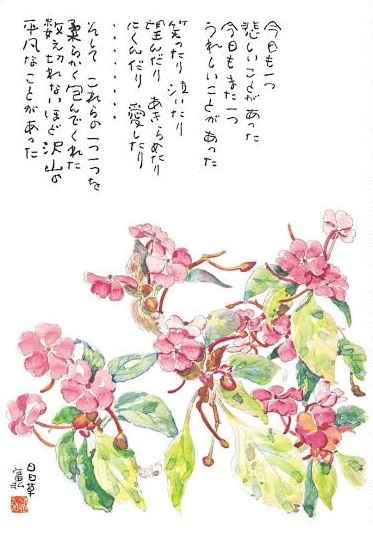 今日も一つ
悲しいことがあった
今日もまた一つ
うれしいことがあった
笑ったり 泣いたり
望んだり あきらめたり
にくんだり 愛したり
・・・・・・
そして これらの一つ一つを
柔らかく包んでくれた
数え切れないほど沢山の
平凡なことがあった
日日草
富